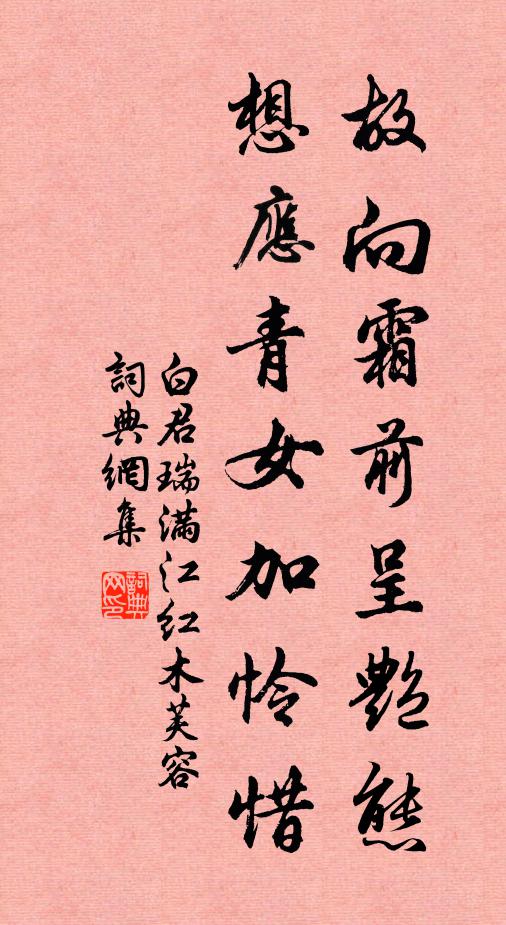 故向霜前呈艷態
想應青女加怜惜
白君瑞滿江红木芙容
詞典網集
詞典网印